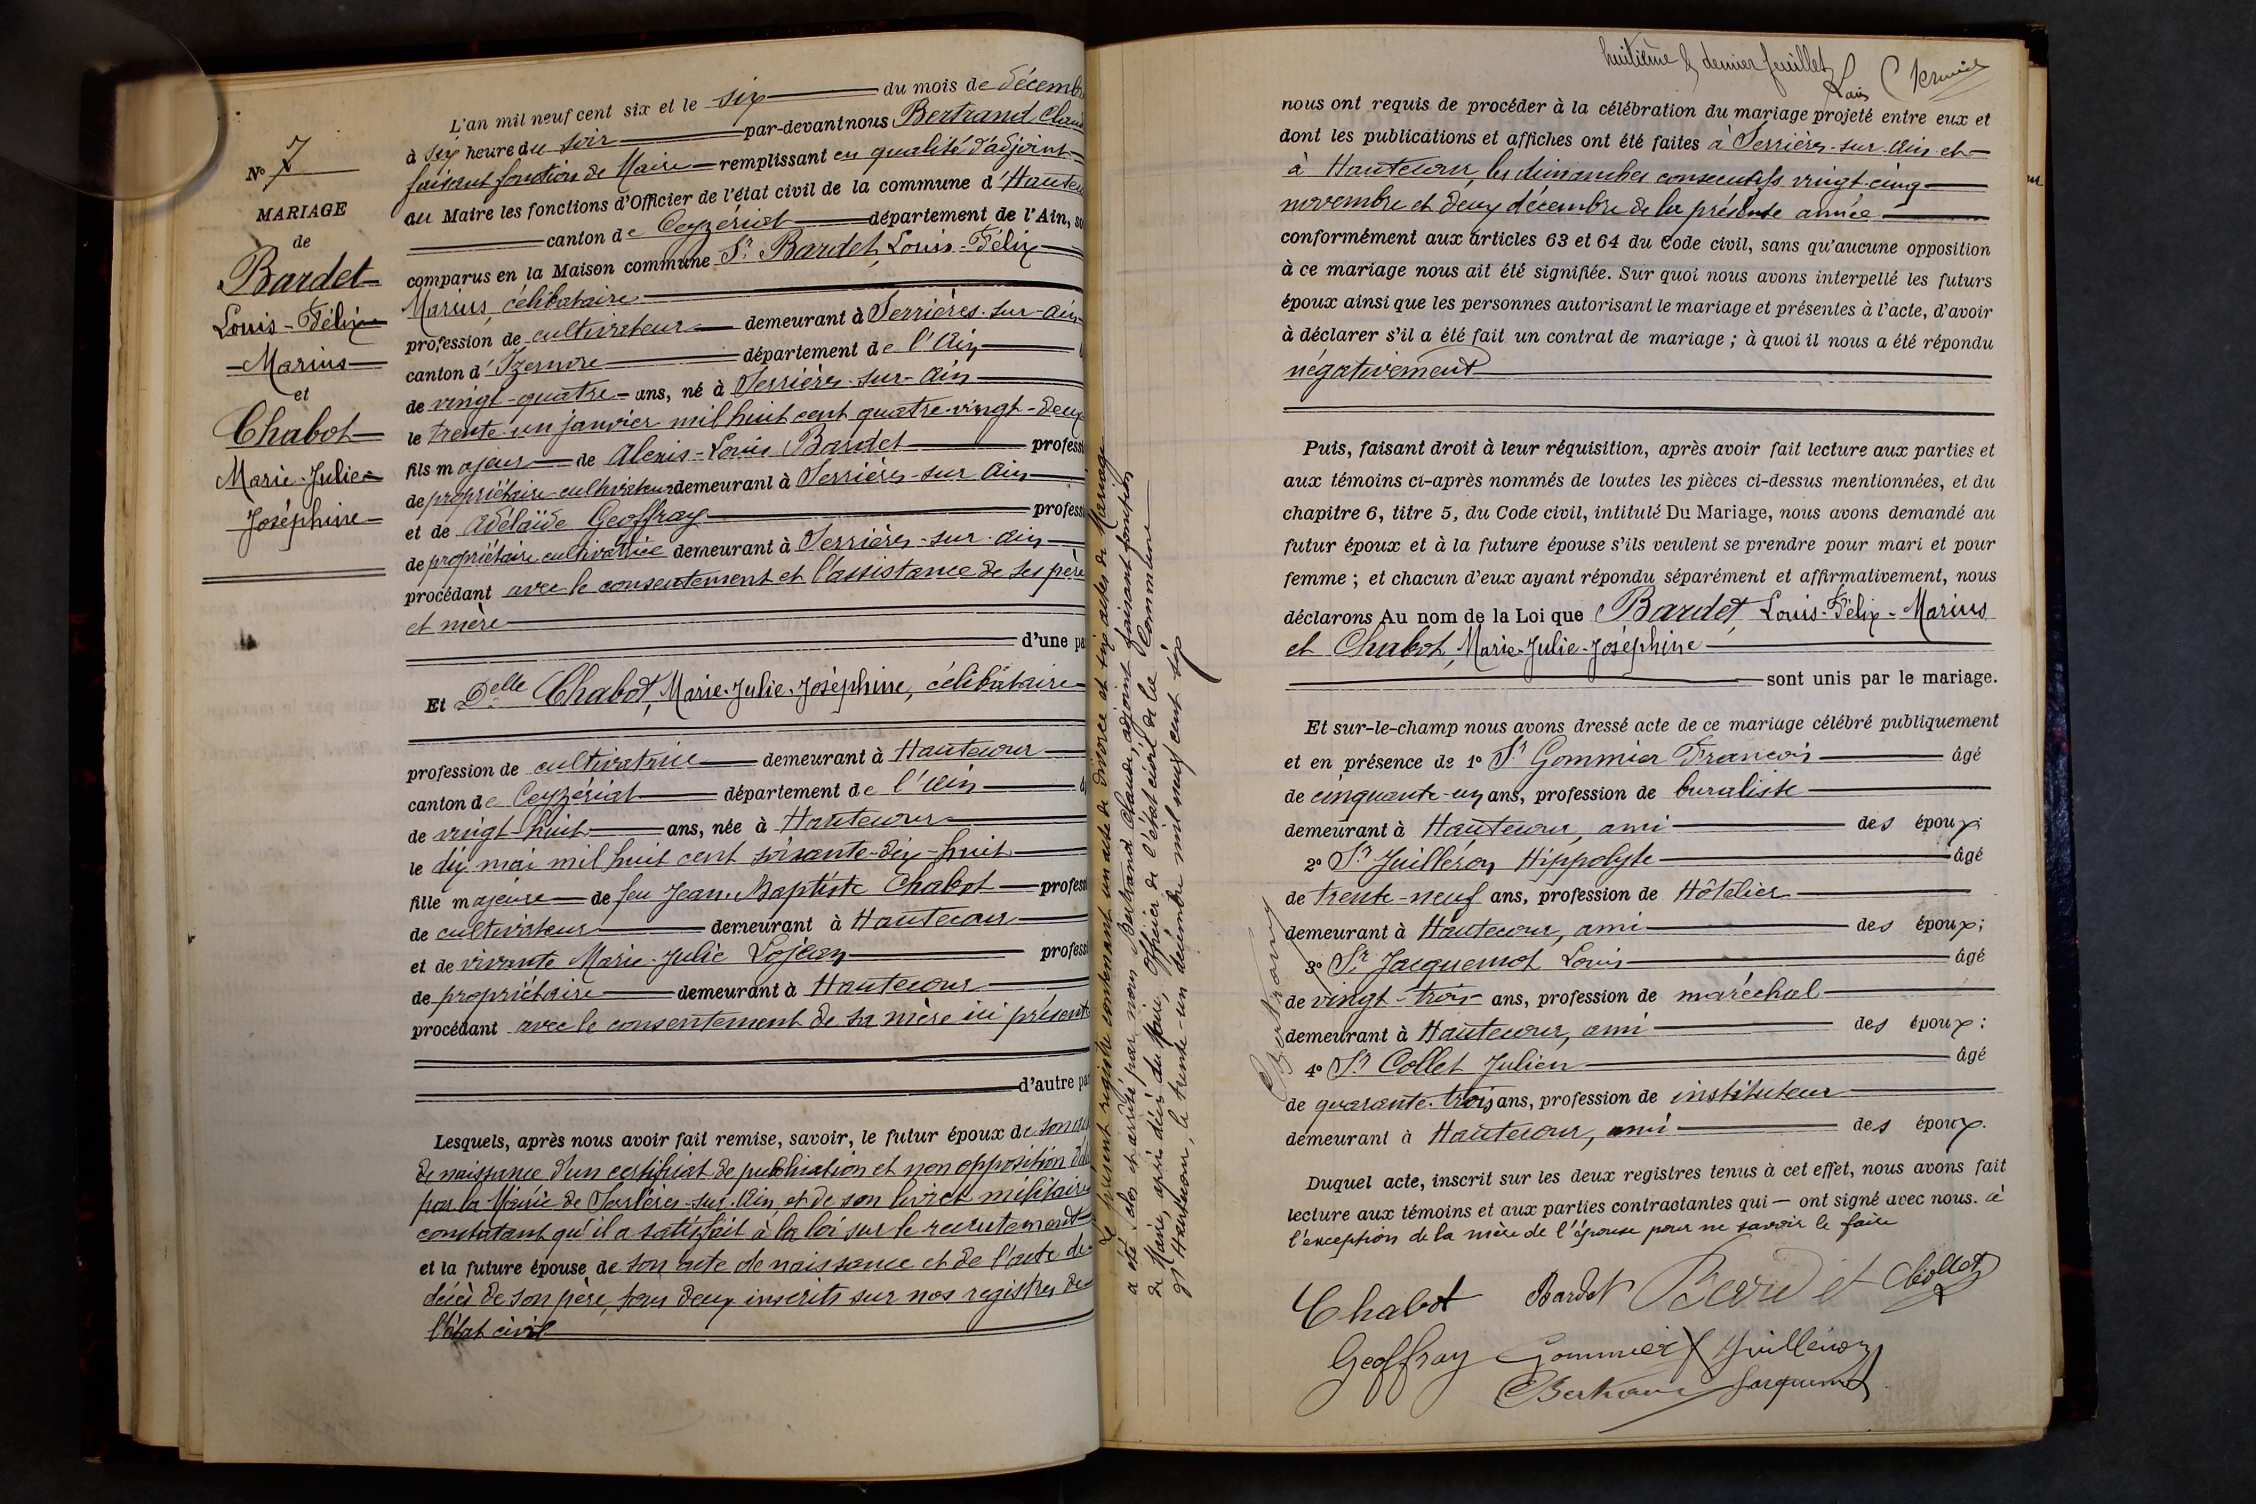 N° 7
MARIAGE
de
Bardet
Louis-Félix
Marius
et
Chabot
Marie-Julie
Joséphine
L'an mil neuf cent six et le six du mois de décemb
à six heure du soir par-devant nous Bertrand Clau
faisant fonction de Maire remplissant en qualité d'adjoint
au Maire les fonctions d'Officier de l'état civil de la commune d'Hautec
canton de Ceyzériat département de l'Ain, so
comparus en la Maison commune Sr Bardet, Louis-Félix
Marius, célibataire
profession de cultivateur demeurant à Serrières-sur-Ain
canton d'Izernore département de l'Ain
de vingt-quatre ans, né à Serrières-sur-Ain
le trente-un janvier mil huit cent quatre-vingt-deux
fils majeur de Alexis-Louis Bardet professi
de propriétaire-cultivateur demeurant à Serrières-sur-Ain
et de Adélaïde Geoffray professi
de propriétaire cultivatrice demeurant à Serrières-sur-Ain
procédant avec le consentement et l'assistance de ses père
et mère
d'une pa
Et Delle Chabot, Marie-Julie-Joséphine, célibataire
profession de cultivatrice demeurant à Hautecour
canton de Ceyzériat département de l'Ain
de vingt-huit ans, née à Hautecour
le dix mai mil huit cent soixante-dix-huit
fille majeure de feu Jean-Baptiste Chabot professi
de cultivateur demeurant à Hautecour
et de vivante Marie-Julie Lojean professi
de propriétaire demeurant à Hautecour
procédant avec le consentement de sa mère ici présente
d'autre par
Lesquels, après nous avoir fait remise, savoir, le futur époux de son
de naissance d'un certificat de publication et non opposition
par la Mairie de Serrières-sur-Ain, et de son livret militaire
constatant qu'il a satisfait à la loi sur le recrutement
et la future épouse de son acte de naissance et de l'acte de
décès de son père, tous deux inscrits sur nos registres de
l'état civil
Le présent registre contenant un acte de divorce et sept actes de Mariage
a été clos et arrêté par nous Bertrand Claude, adjoint faisant fonction
de Maire, après décès du Maire, Officier de l'état civil de la Commune
d'Hautecour, le trente-un décembre mil neuf cent six
Bertrand
huitième & dernier feuillet
nous ont requis de procéder à la célébration du mariage projeté entre eux et
dont les publications et affiches ont été faites à Serrières-sur-Ain et
à Hautecour, les dimanches consécutifs vingt-cinq
novembre et deux décembre de la présente année
conformément aux articles 63 et 64 du Code civil, sans qu'aucune opposition
à ce mariage nous ait été signifiée. Sur quoi nous avons interpellé les futurs
époux ainsi que les personnes autorisant le mariage et présentes à l'acte, d'avoir
à déclarer s'il a été fait un contrat de mariage ; à quoi il nous a été répondu
négativement
Puis, faisant droit à leur réquisition, après avoir fait lecture aux parties et
aux témoins ci-après nommés de toutes les pièces ci-dessus mentionnées, et du
chapitre 6, titre 5, du Code civil, intitulé Du Mariage, nous avons demandé au
futur époux et à la future épouse s'ils veulent se prendre pour mari et pour
femme ; et chacun d'eux ayant répondu séparément et affirmativement, nous
déclarons Au nom de la Loi que Bardet, Louis-Félix-Marius
et Chabot, Marie-Julie-Joséphine
sont unis par le mariage.
Et sur-le-champ nous avons dressé acte de ce mariage célébré publiquement
et en présence de 1° Sr Gommier François âgé
de cinquante-un ans, profession de buraliste
demeurant à Hautecour, ami des époux;
2° Sr Juilléron Hippolyte âgé
de trente-neuf ans, profession de Hôtelier
demeurant à Hautecour, ami des époux;
3° Sr Jacquemot Louis âgé
de vingt-trois ans, profession de maréchal
demeurant à Hautecour, ami des époux;
4° Sr Collet Julien âgé
de quarante-trois ans, profession de instituteur
demeurant à Hautecour, ami des époux.
Duquel acte, inscrit sur les deux registres tenus à cet effet, nous avons fait
lecture aux témoins et aux parties contractantes qui — ont signé avec nous. à
l'exception de la mère de l'épouse pour ne savoir le faire
Chabot Bardet Bardet Collet
Geoffray Gommier F Juilléron
Bertrand Jacquemot